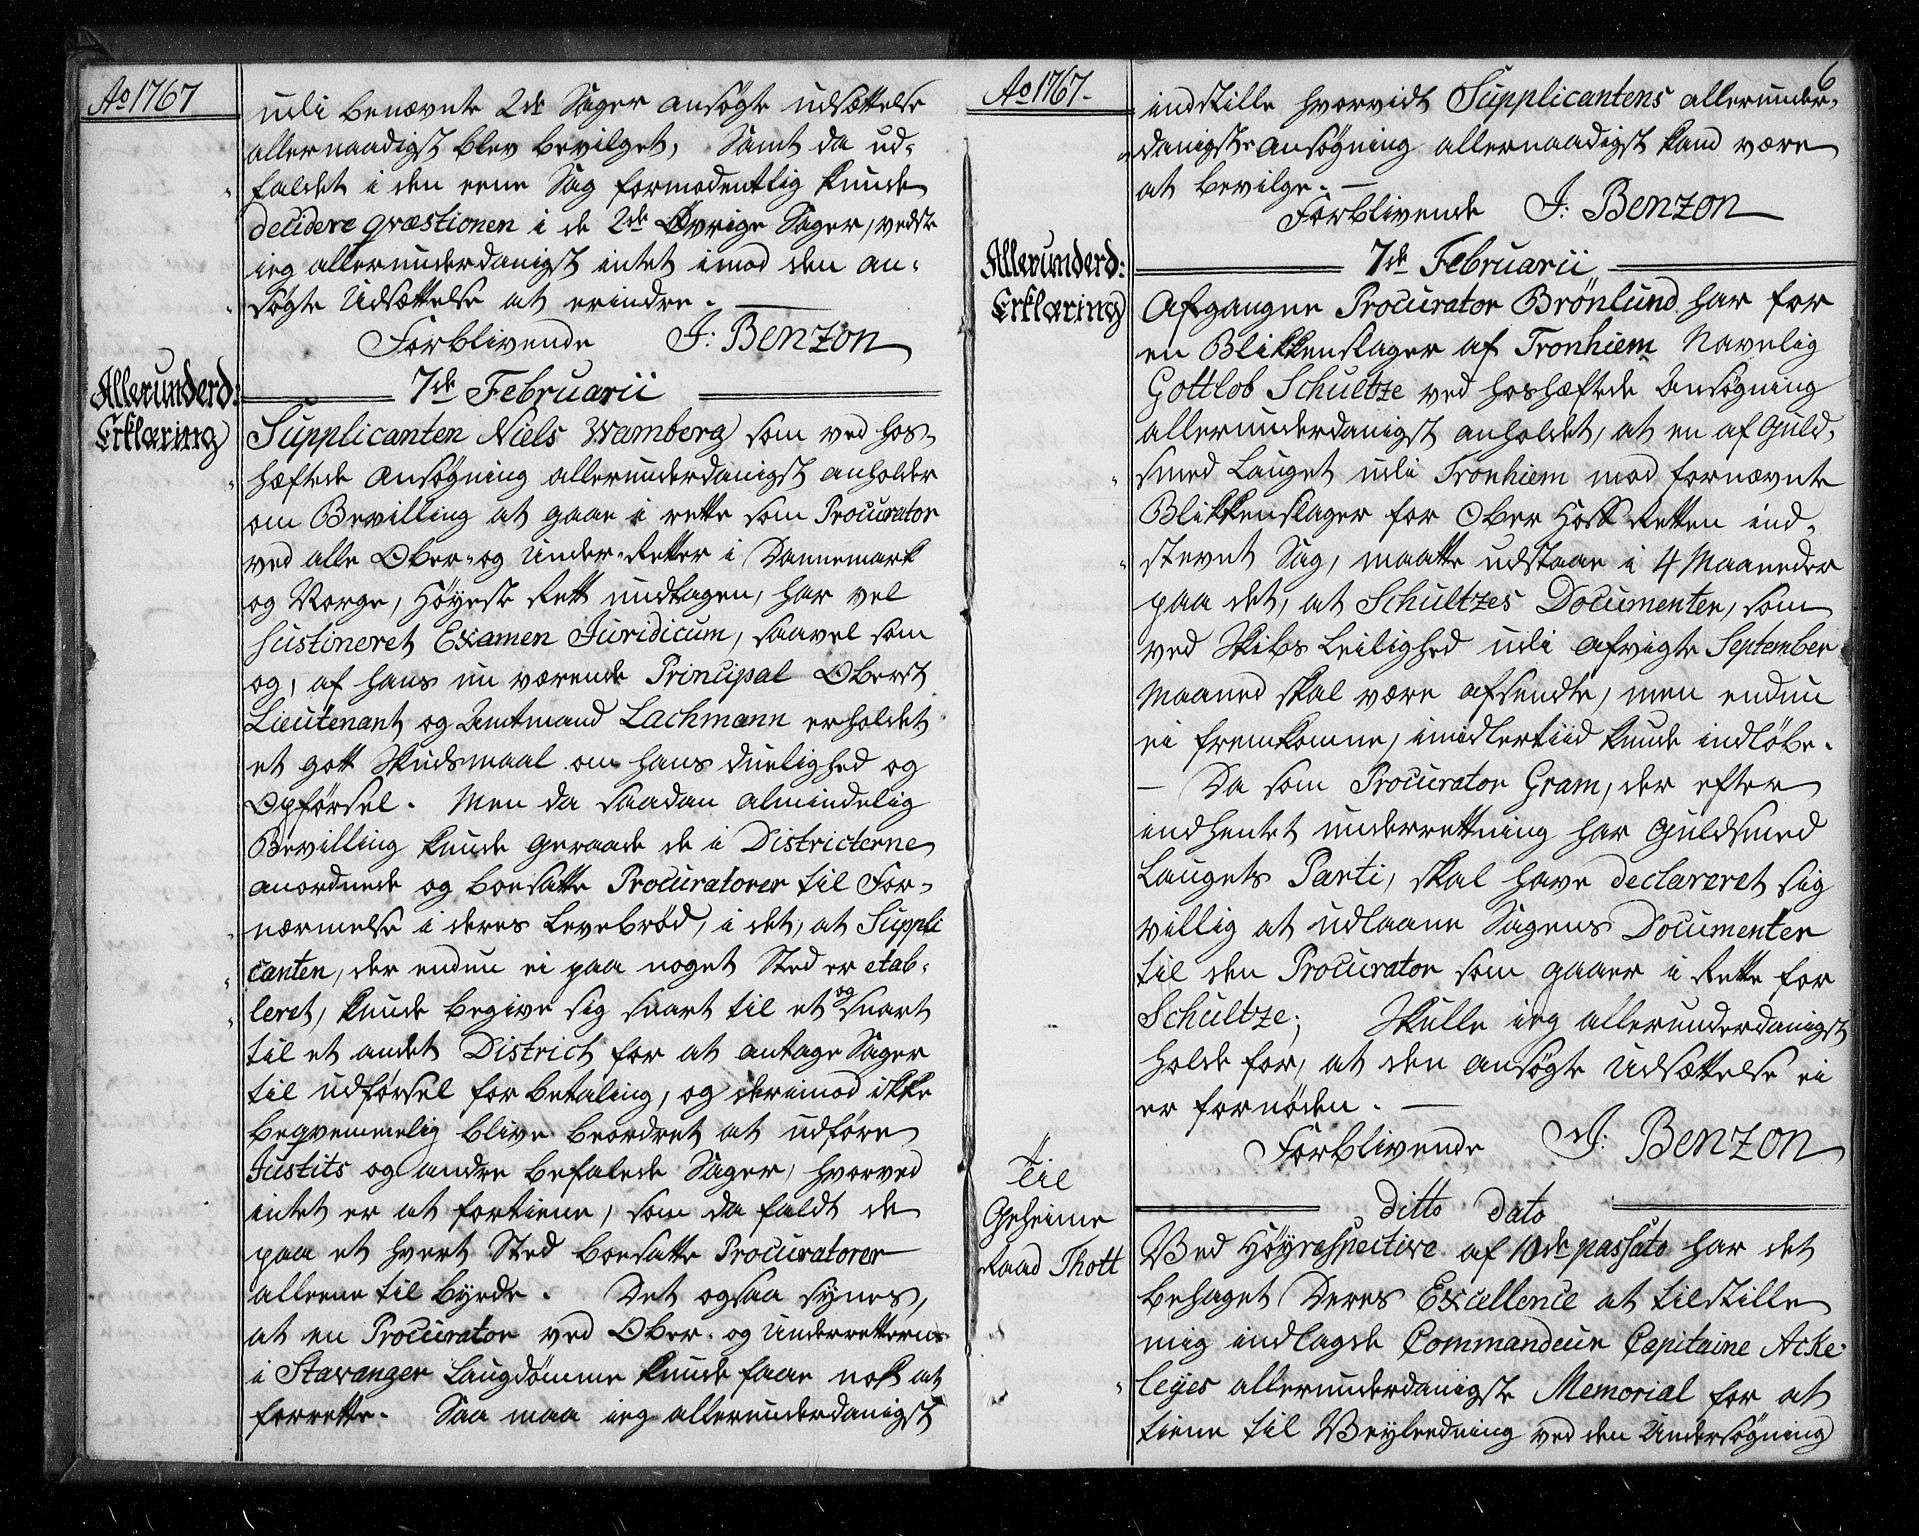 Ao 1767
udi benævnte 2de Sager ansøgte udsættelse
allernaadigst blev bevilget, Samt da ud-
faldet i den eene Sag formodentlig kunde
decidere qvæstionen i de 2de Øvrige Sager, vedste
ieg allerunderdanigst intet imod den an-
søgte Udsættelse at erindre.
Forblivende J: Benzon
7de Februarii
Allerunderd:
Erklæring
Supplicanten Niels Wamberg som ved hos-
hæftede Ansøgning allerunderdanigst anholder
om Bevilling at gaae i rette som Procurator
ved alle Ober- og Under-Retter i Dannemark
og Norge, Høyeste Rett undtagen, har vel
sustineret Examen Juridicum, saavel som
og, af hans nu værende Principal Oberst
Lieutenant og Amtmand Lachmann erholdet
et gott Skudsmaal om hans duelighed og
Opførsel. Men da saadan almindelig
Bevilling kunde geraade de i Districterne
anordnede og boesatte Procuratorer til For-
nærmelse i deres Levebrød, i det, at Suppli
canten, der endnu ei paa noget Sted er etab-
leret, kunde begive sig snart til et og snart
til et andet District for at antage Sager
til udførsel for betaling, og derimod ikke
beqvemmelig blive beordret at udføre
Justits og andre befalede Sager, hvorved
intet er at fortiene, som da faldt de
paa et hvert Sted boesatte Procuratorer
alleene til byrde. Det ogsaa synes,
at en Procurator ved Ober- og Underretterne
i Stavanger Laugdømme kunde faae nok at
forrette. Saa maa ieg allerunderdanigst
Ao 1767.
6
indstille hvorvidt Supplicantens allerunder-
danigste Ansøgning allernaadigst kand være
at bevilge.
Forblivende J: Benzon
7de Februarii
Allerunderd:
Erklæring
Afgangne Procurator Brönlund har for
en Blikkenslager af Tronhiem Navnlig
Gottlob Schultze ved hoshæftede Ansøgning
allerunderdanigst anholdet, at en af Guld-
smed Lauget udi Tronhiem mod fornævnte
Blikkenslager for Ober Hoff Retten ind-
stevnt Sag, maatte udstaae i 4 Maaneder
paa det, at Schultzes Documenter, som
ved Skibs Leilighed udi afvigte September
Maaned skal være afsendte, men endnu
ei fremkomne, imidlertiid kunde indløbe.
— Da som Procurator Gram, der efter
indhentet underrettning har Guldsmed
Laugets Parti, skal have declareret sig
villig at udlaane Sagens Documenter
til den Procurator som gaaer i Rette for
Schultze; Skulle ieg allerunderdanigst
holde for, at den ansøgte Udsættelse ei
er fornøden.
Forblivende J: Benzon
ditto dato
Til
Geheime
Raad Thott
Ved Høyrespective af 10de passato har det
behaget Deres Excellence at tilstille
mig indlagde Commandeur Capitaine Acke-
leyes allerunderdanigste Memorial for at
tiene til Veyleedning ved den Undersøgning